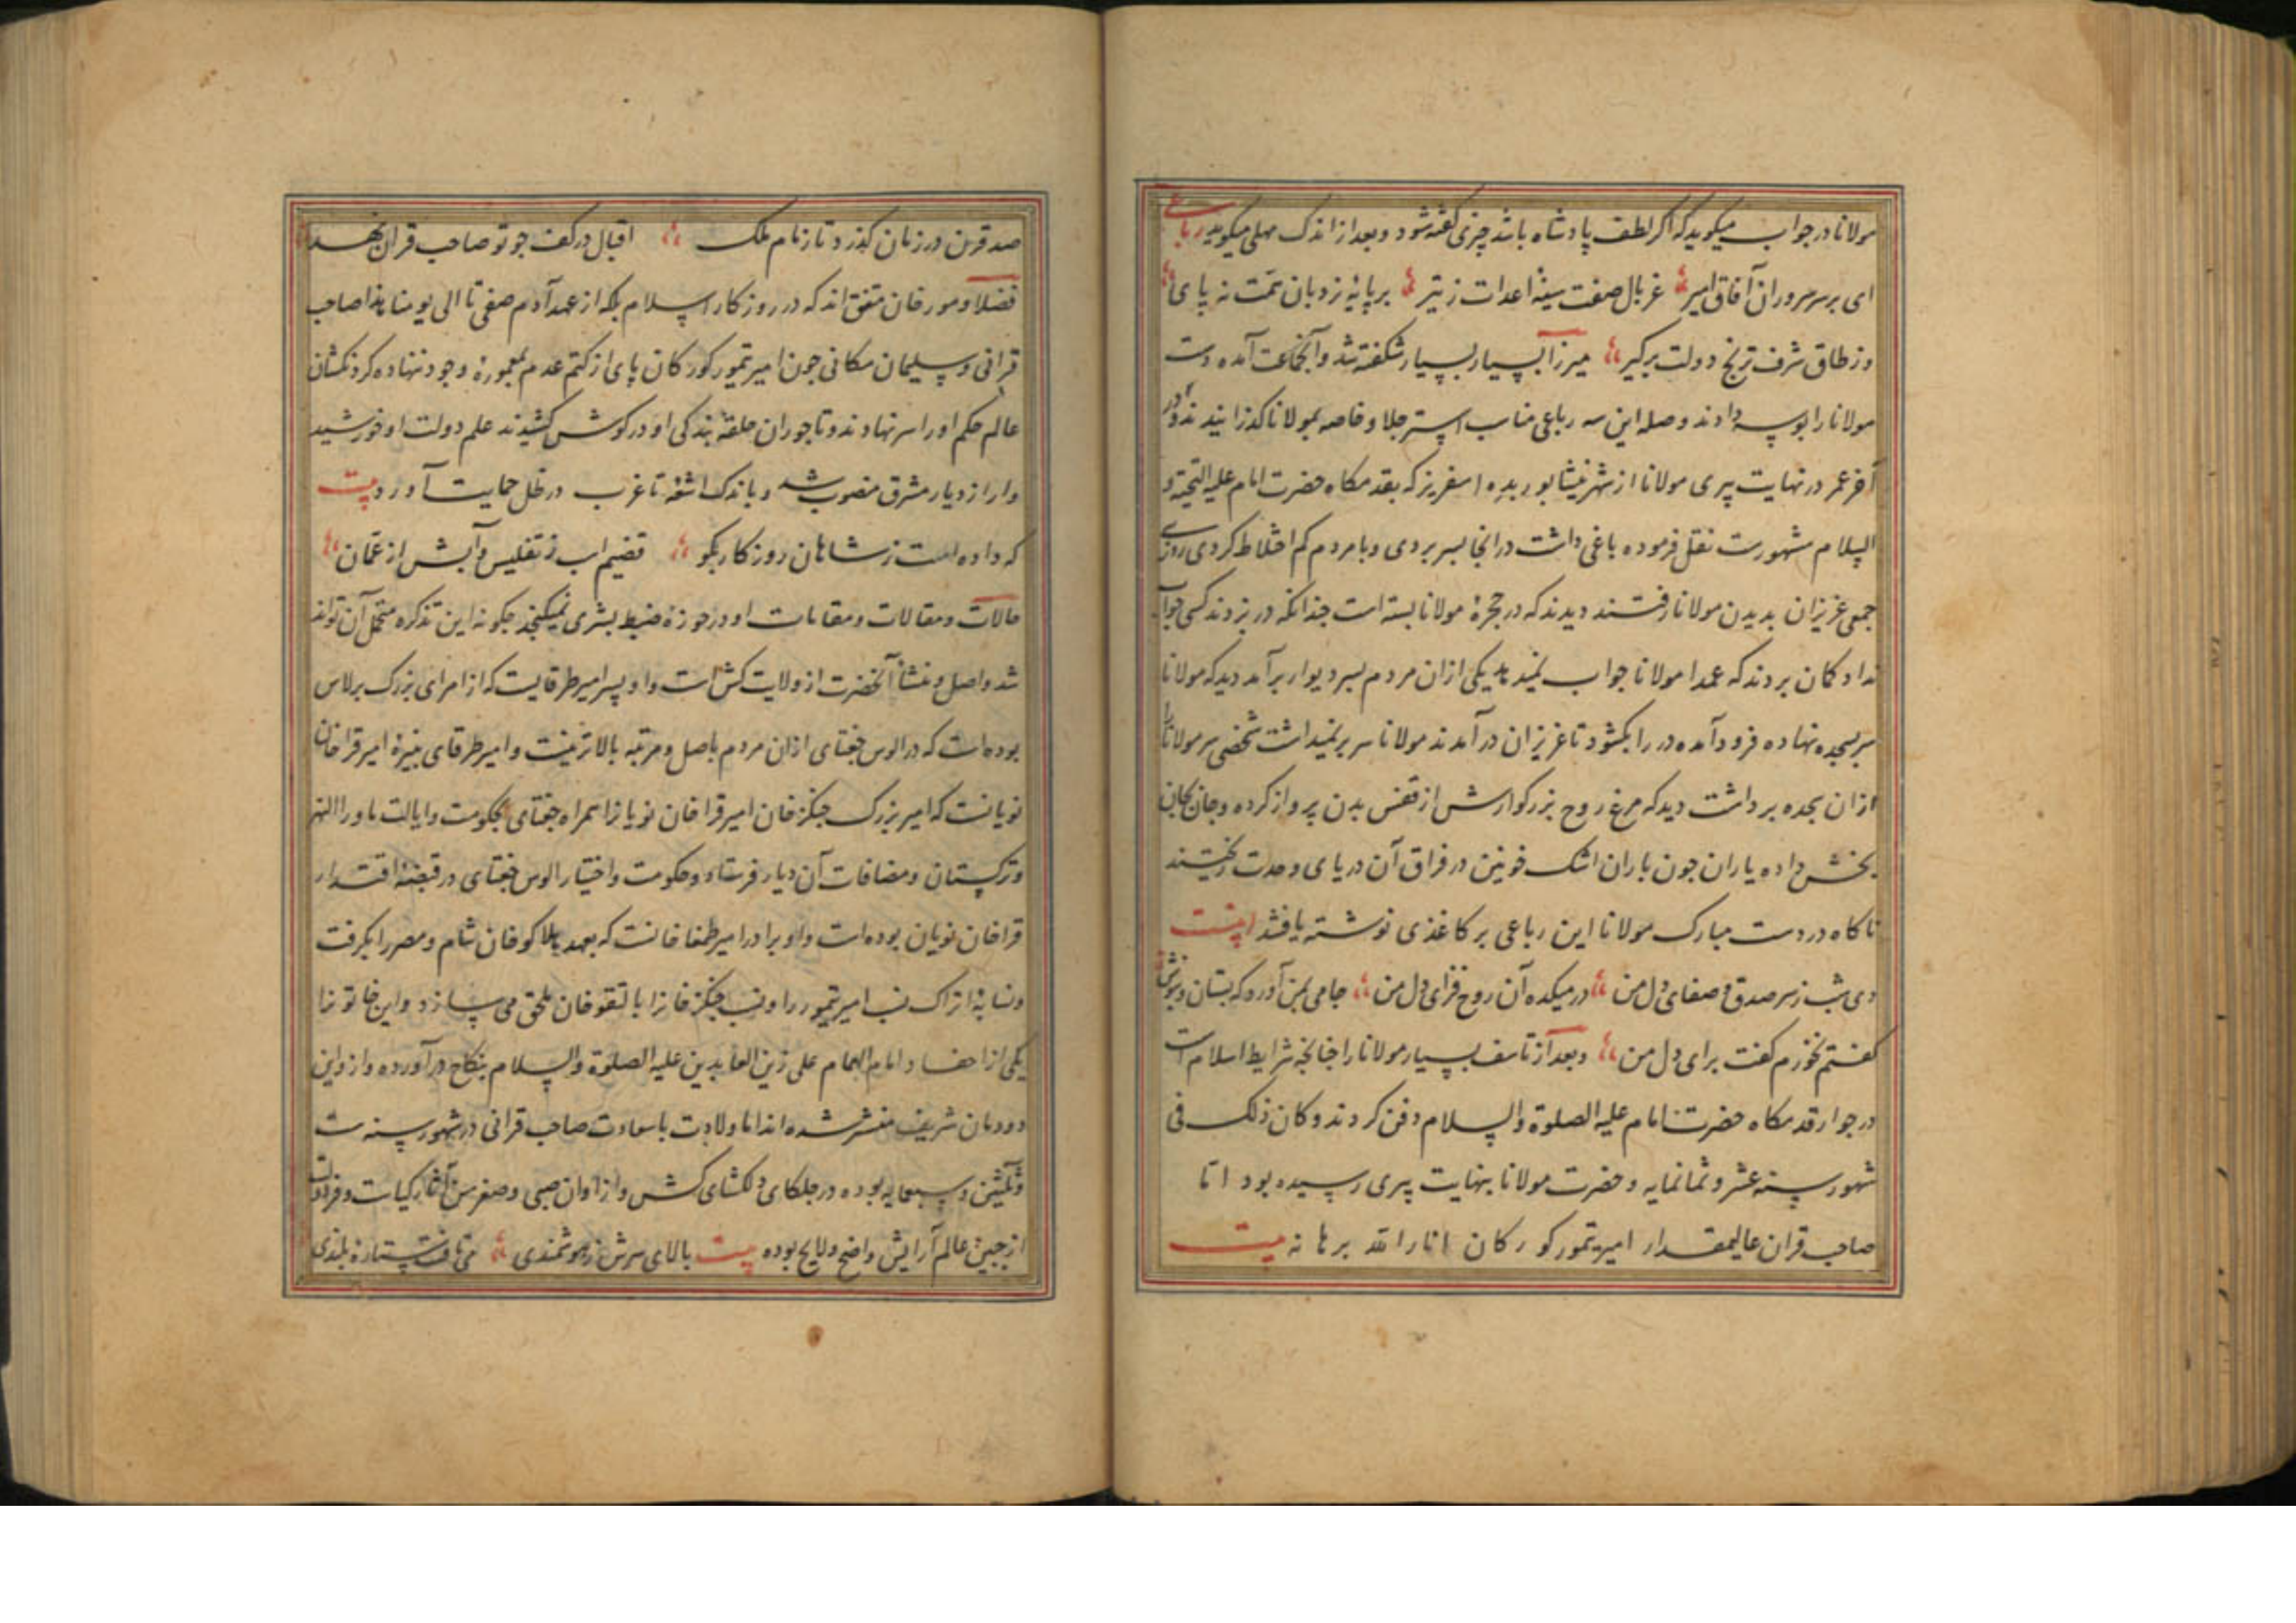 مولانا در جواب میکوید که اکر لطف پادشاه باشد چیزی کفته شود و بعد از اندک مهلی میکوید رباعی
ای بر سر سروران آفاق امیر غربال صفت سینهٔ اعدات ز تیر بر پایهٔ نردبان همت نه پای
وز طاق شرف ترنج دولت برکیر میرزا بسیار بسیار شکفته شد و آنجماعت آمده دست
مولانا را بوسه دادند و صله این سه رباعی مناسب استر جلا و خاصه بمولانا کذرانیدند و در
آخر عمر در نهایت پیری مولانا از شهر نیشابور بده اسفریز که بقدمکاه حضرت امام علیه التحیة و
السلام مشهورست نقل فرموده باغی داشت در انجا بسر بردی و با مردم کم اختلاط کردی روزی
جمعی عزیزان بدیدن مولانا رفتند دیدند که در حجرهٔ مولانا بسته است چندانکه در بزدند کسی جواب
نداد کمان بردند که عمدا مولانا جواب نمیدهد یکی ازان مردم بسر دیوار برآمد دید که مولانا
سر بسجده نهاده فرود آمده در را بکشود تا عزیزان در آمدند مولانا سر بر نمیداشت شخصی سر مولانا را
ازان سجده برداشت دید که مرغ روح بزرکوارش از قفس بدن پرواز کرده و جان بجان
بخش داده یاران جون باران اشک خونین در فراق آن دریای وحدت ریختند
ناکاه در دست مبارک مولانا این رباعی بر کاغذی نوشته یافتند اینست
دی شب ز سر صدق و صفای دل من در میکده آن روح فزای دل من جامی بمن آورد که بستان و بنوش
کفتم نخورم کفت برای دل من و بعد از تاسف بسیار مولانا را چنانچه شرایط اسلام است
در جوار قدمکاه حضرت امام علیه الصلوة والسلام دفن کردند و کان ذلک فی
شهور سنه عشر و ثمانمایه و حضرت مولانا بنهایت پیری رسیده بود اتا
صاحب قران عالیمقدار امیر تیمور کورکان انار الله برهانه بیت
صد قرن در زمان کذرد تا زنام ملک اقبال در کف جو تو صاحب قران نهد
فضلا و مورخان متفق اند که در روزکار اسلام بلکه از عهد آدم صفی تا الی یومنا هذا صاحب
قرانی و سلیمان مکانی جون امیر تیمور کورکان پای از کتم عدم بمعمورهٔ وجود ننهاده کردنکشان
عالم حکم او را سر نهادند و تاجوران حلقهٔ بندکی او در کوش کشیدند علم دولت او خورشید
وار از دیار مشرق منصوب شد و باندک اشفه تا غرب در ظل حمایت آورد بیت
که داده است ز شاهان روزکار بکو قضیم اسب ز تفلیس و آبش از عمان
حالات و مقالات و مقامات او در حوزهٔ ضبط بشری نمیکنجد جکونه این تذکره متحمل آن تواند
شد و اصل و منشأ آنحضرت از ولایت کش است و او پسر امیر طرقایست که از امرای بزرک برلاس
بوده است که در الوس جغتای ازان مردم باصل و مرتبه بالاتر نیست و امیر طرقای نبیرهٔ امیر قراخان
نویانست که امیر بزرک جنکز خان امیر قراخان نویانرا همراه جغتای بحکومت و ایالت ماوراالنهر
و ترکستان و مضافات آن دیار فرستاد و حکومت و اختیار الوس جغتای در قبضهٔ اقتدار
قراخان نویان بوده است و او برادر امیر طمغا خانست که بعهد هلاکو خان شام و مصر را بکرفت
و نسابهٔ اتراک نسب امیر تیمور را و نسب جنکز خانرا بالنقوخان ملحق می سازد و این خاتونرا
یکی از احفاد امام الهمام علی زین العابدین علیه الصلوة والسلام بنکاح در آورده و از واین
دودمان شریف منتشر شده اند اما ولادت باسعادت صاحب قرانی در شهور سنه ست
و ثلثین و سبعمایه بوده در جلکای دلکشای کش و از اوان صبی و صغر سن آثار کیاست و فراست
از جبین عالم آرایش واضح و لایح بوده بیت بالای سرش ز هوشمندی می تافت ستارهٔ بلندی